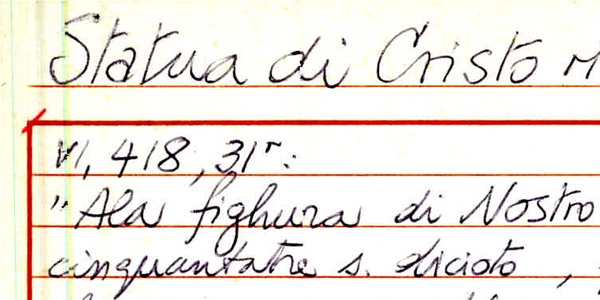 Statua di Cristo M
VI, 418, 31r:
"Ala fighura di Nostro
cinquantatre s. dicioto,